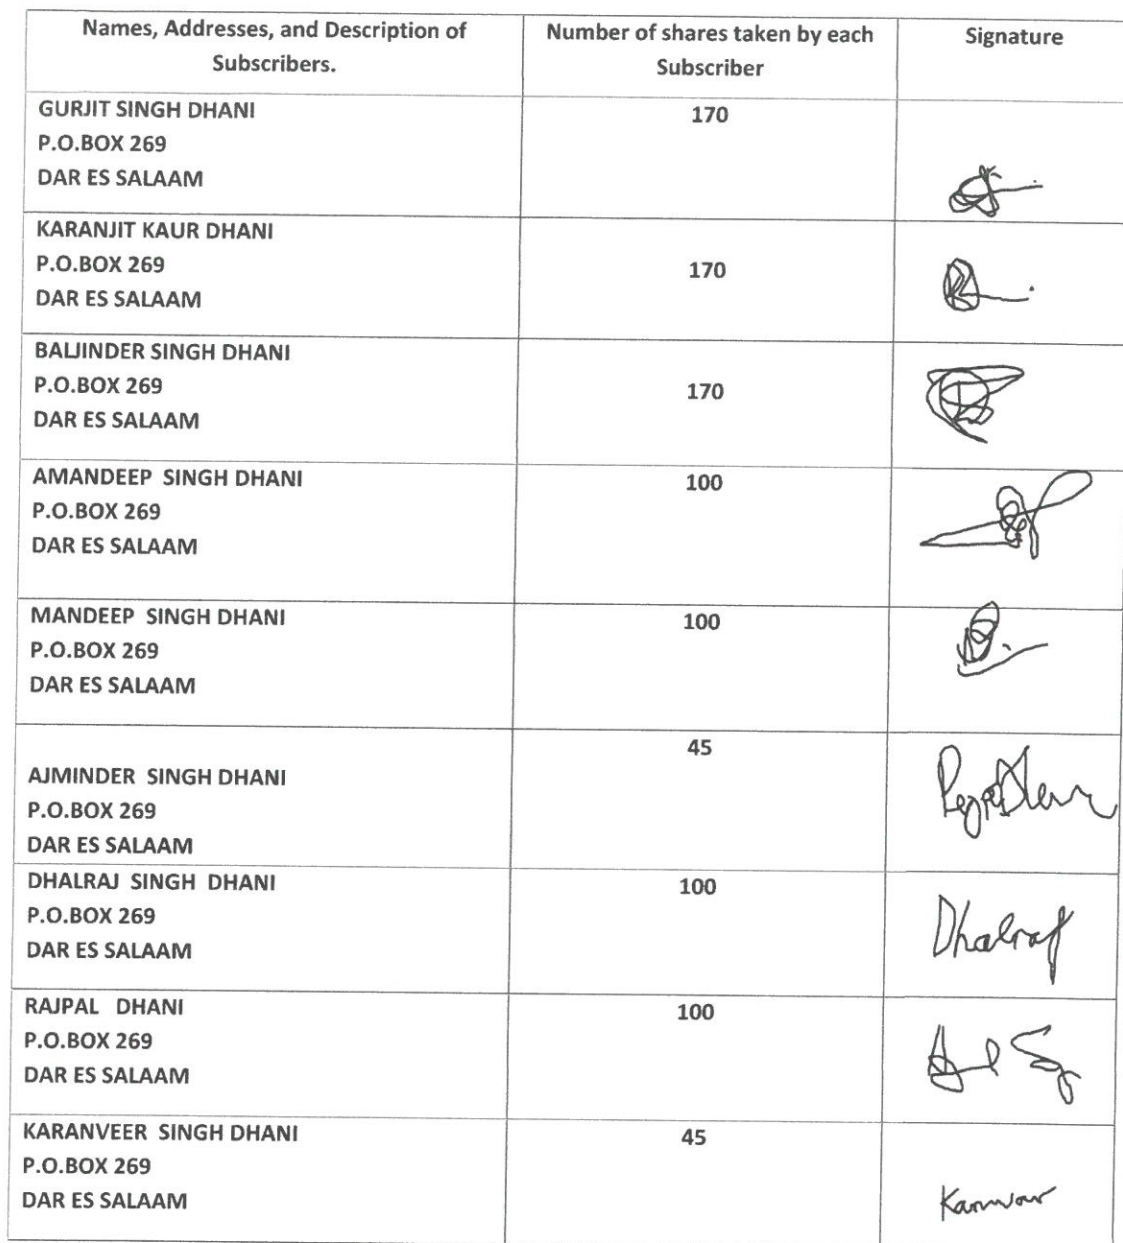 Names, Addresses, and Description of
Subscribers.
Number of shares taken by each
Subscriber
Signature
GURJIT SINGH DHANI
P.O.BOX 269
DAR ES SALAAM
170
KARANJIT KAUR DHANI
P.O.BOX 269
DAR ES SALAAM
170
BALJINDER SINGH DHANI
P.O.BOX 269
DAR ES SALAAM
170
AMANDEEP SINGH DHANI
P.O.BOX 269
DAR ES SALAAM
100
MANDEEP SINGH DHANI
P.O.BOX 269
DAR ES SALAAM
100
AJMINDER SINGH DHANI
P.O.BOX 269
DAR ES SALAAM
45
DHALRAJ SINGH DHANI
P.O.BOX 269
DAR ES SALAAM
100
Dhalraj
RAJPAL DHANI
P.O.BOX 269
DAR ES SALAAM
100
KARANVEER SINGH DHANI
P.O.BOX 269
DAR ES SALAAM
45